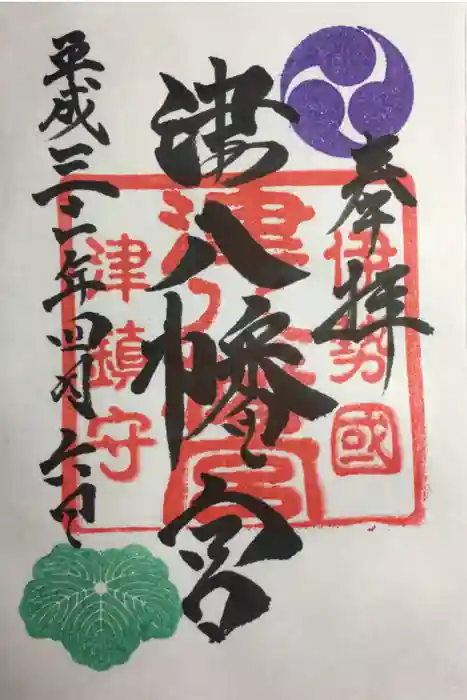 奉拝
伊勢國
津八幡宮
津八幡宮
津鎮守
平成三十一年四月六日